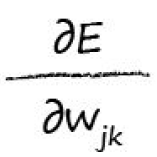 ∂E
∂w_jk